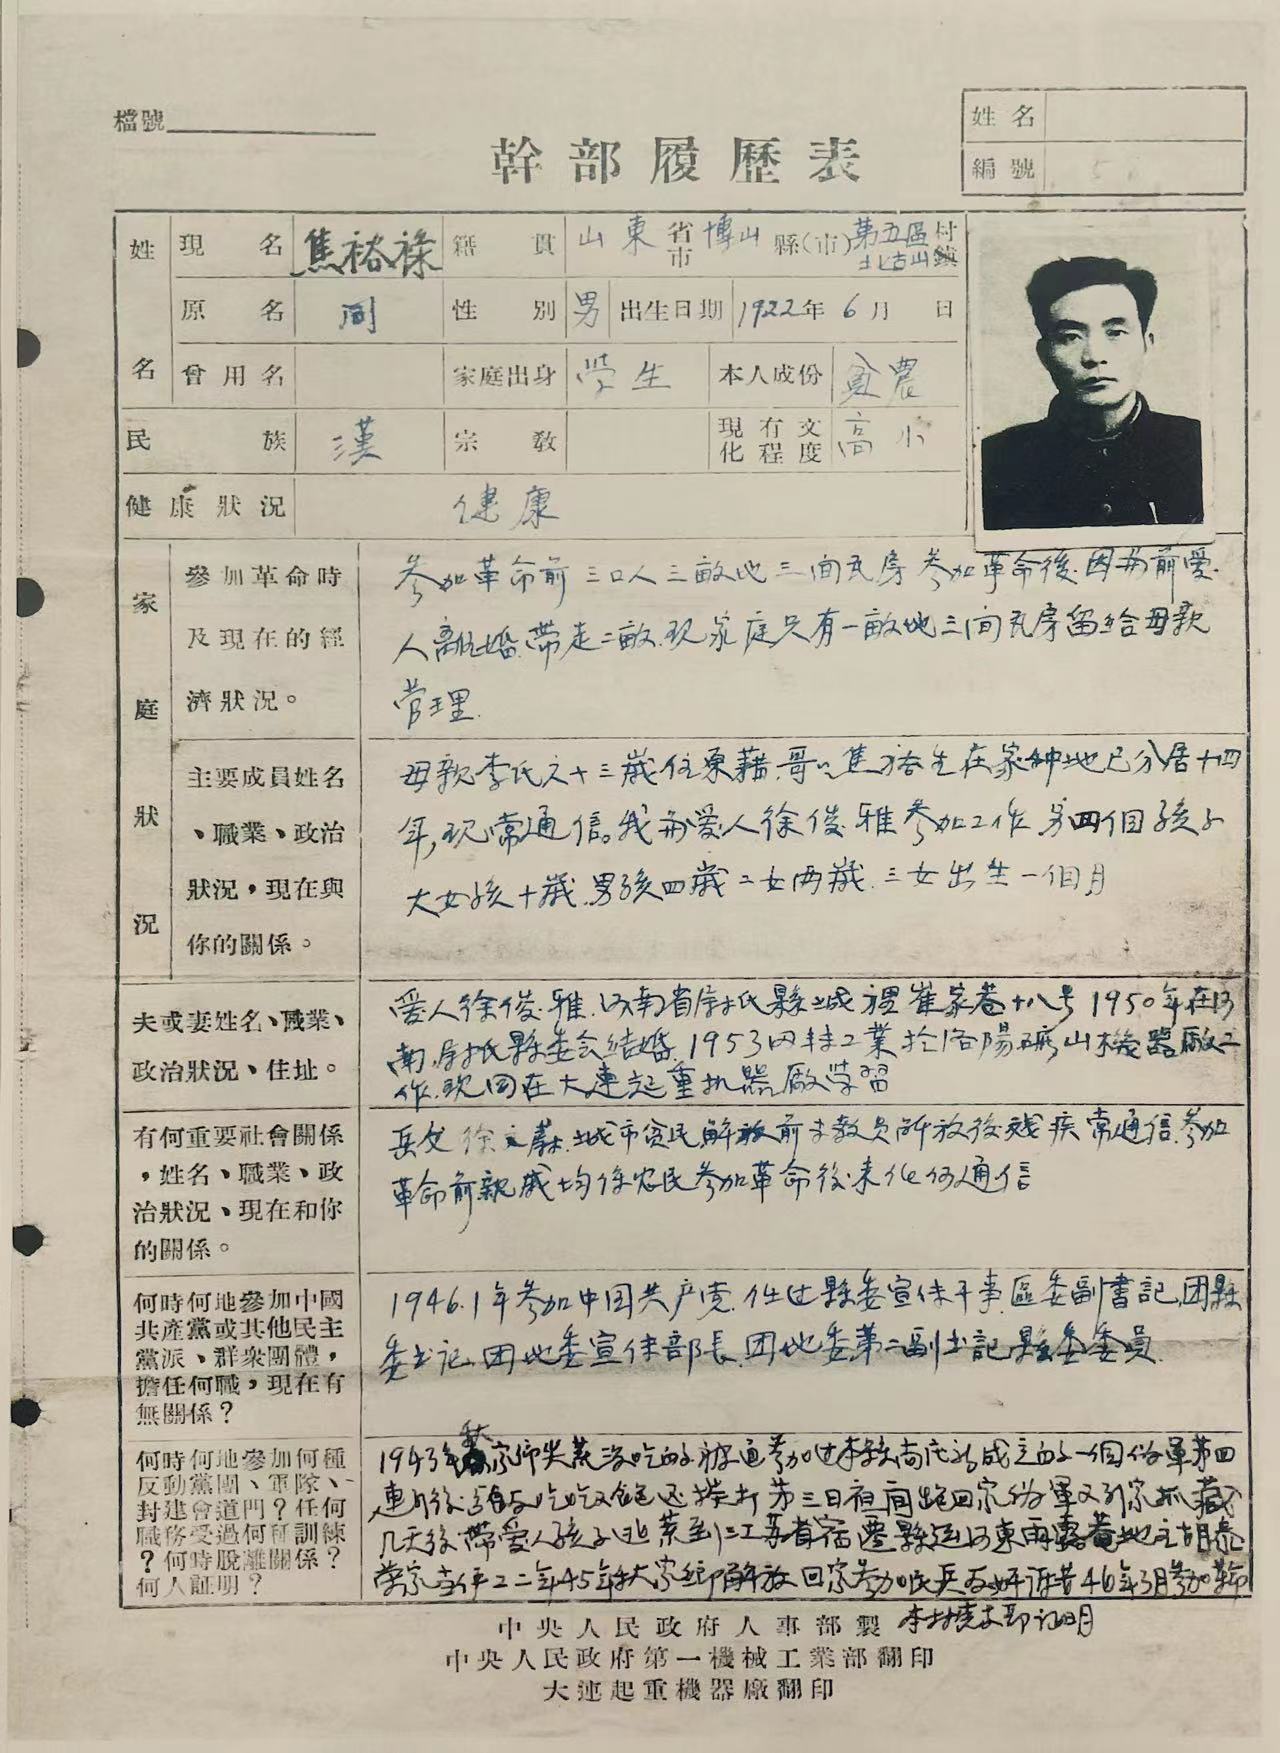 檔號
幹部履歷表
姓名
編號 5
姓名 現名 焦裕祿 籍貫 山東省市 博山縣(市) 第五區北古山村鎮
原名 同 性別 男 出生日期 1922年6月 日
曾用名 家庭出身 学生 本人成份 贫農
民族 漢 宗教 現有文化程度 高小
健康狀況 健康
家庭狀況
參加革命時
及現在的經
濟狀況。
参加革命前三口人三畝地三间瓦房参加革命後因和前爱
人離婚帶走二畝现家庭只有一畝地三间瓦房留给母親
管理.
主要成員姓名
、職業、政治
狀況,現在與
你的關係。
母親李氏六十三歲住原籍.哥哥焦裕生在家种地已分居十四
年,现常通信。我和爱人徐俊雅参加工作另四個孩子
大女孩十歲.男孩四歲二女两歲.三女出生一個月
夫或妻姓名、職業、
政治狀況、住址。
爱人徐俊雅.河南省尉氏縣城裡崔家巷十八号1950年在河
南尉氏縣委会结婚.1953因转工業於洛陽礦山機器厰工
作.现同在大連起重机器厰学習
有何重要社會關係
,姓名、職業、政
治狀況、現在和你
的關係。
岳父徐 城市贫民解放前 教員解放後残疾常通信.参加
革命前親戚均係农民参加革命後未 通信
何時何地參加中國
共產黨或其他民主
黨派、群衆團體,
擔任何職,現在有
無關係?
1946.1年参加中国共产党.任过縣委宣传干事.區委副書記.团縣
委书记.团地委宣传部長.团地委第二副书記縣委委員.
何時何地參加何種
反動黨團、軍隊、
封建會道門?任何
職務受過何種訓練
?何時脫離關係?
何人証明?
1943年 家鄉灾荒没吃的 被逼参加过本縣 成立的一個伪軍第四
連 後 吃吃又飽还挨打第三日夜间跑回家伪軍又到家抓藏
几天後带爱人孩子逃荒至江苏省宿遷縣 河東 地主胡
榮家 工二年45年秋家鄉解放回家参加民兵 46年3月参加革命
李 支部证明
中央人民政府人事部製
中央人民政府第一機械工業部翻印
大連起重機器廠翻印